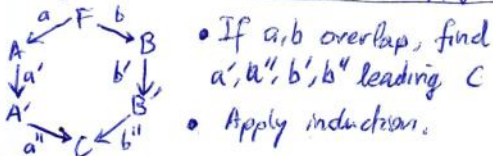 a F b
A B
a' b'
A' B'
a'' C b''
• If a,b overlap, find
a', a'', b', b'' leading C
• Apply induction.